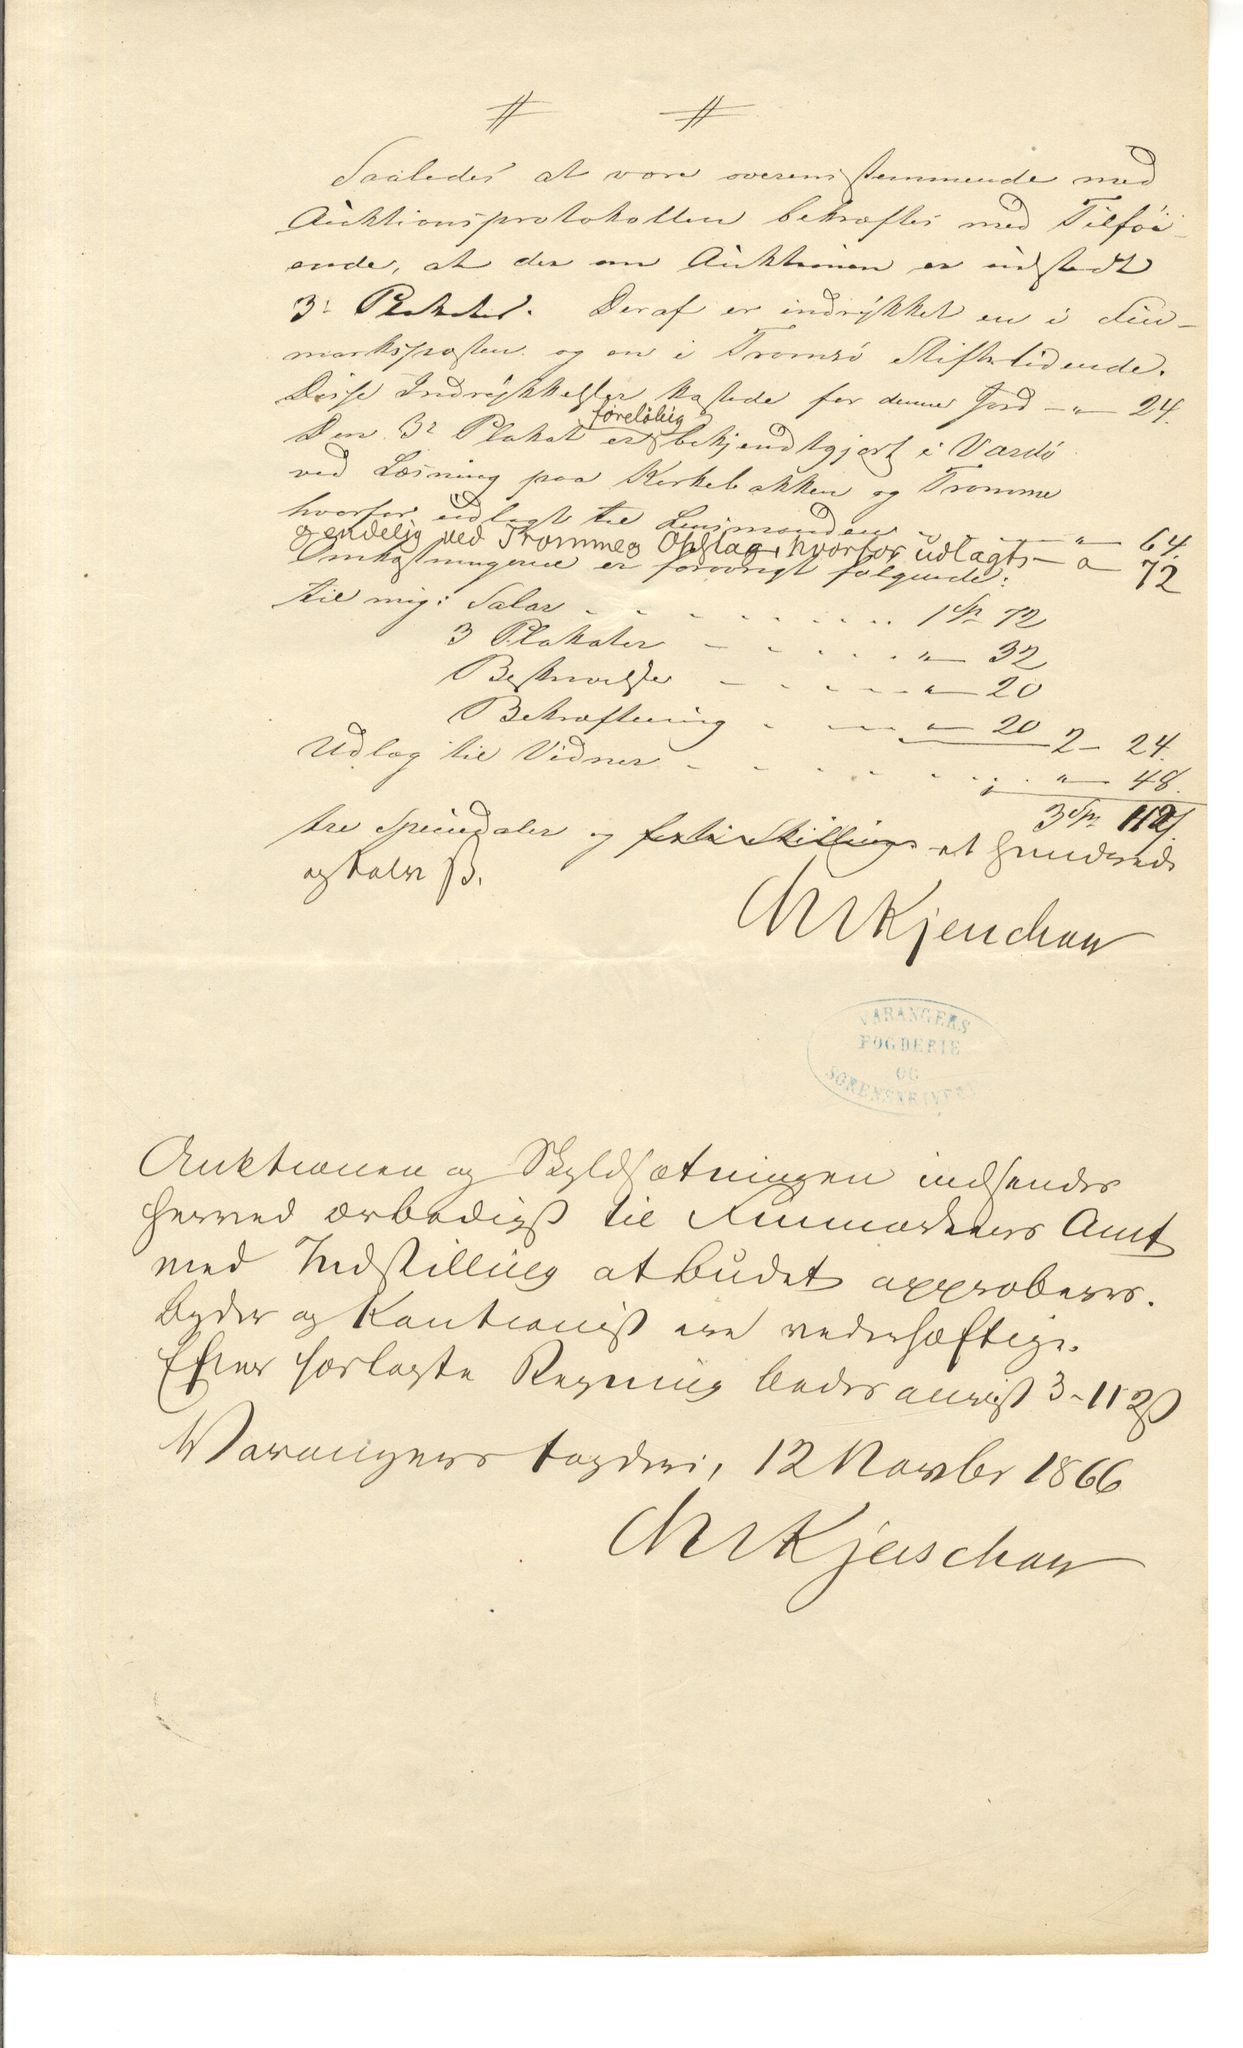 Saaledes at være overensstemmende med
Auktionsprotokollen bekræftes med Tilføi-
ende, at der om Auktionen er udstedt
3de Plakater. Deraf er indrykket en i Fin-
marksposten og en i Tromsø Stiftstidende.
Disse Indrykkelser kostede for denne Jord - " - 24.
foreløbig
Den 3die Plakat er bekjendtgjort i Vardø
ved Læsning paa Kirkebakken og Tromme
hvorfor udlagt til Lensmanden - " - 64.
og endelig ved Tromme og Opslag, hvorfor udlagts - " - 72
Omkostningerne er forøvrigt følgende:
til mig: Salær 1 Sp 72
3 Plakater " - 32
Beskrivelse " - 20
Bekræftning " - 20 2 - 24.
Udlæg til Vidner " - 48.
3 Sp. 112 ß.
tre Speciedaler og et hundrede
og tolv ß.
Chr Kjerschow
VARANGERS
FOGDERIE
OG
SORENSKRIVERI
Auktionen og Skyldsætningen indsendes
herved ærbødigst til Finmarkens Amt
med Indstilling at Budet approberes.
Byder og Kautionist ere vederhæftige.
Efter forlagte Regning bedes anvist 3 - 112 ß
Varangers Fogderi, 12 Novbr 1866
Chr Kjerschow